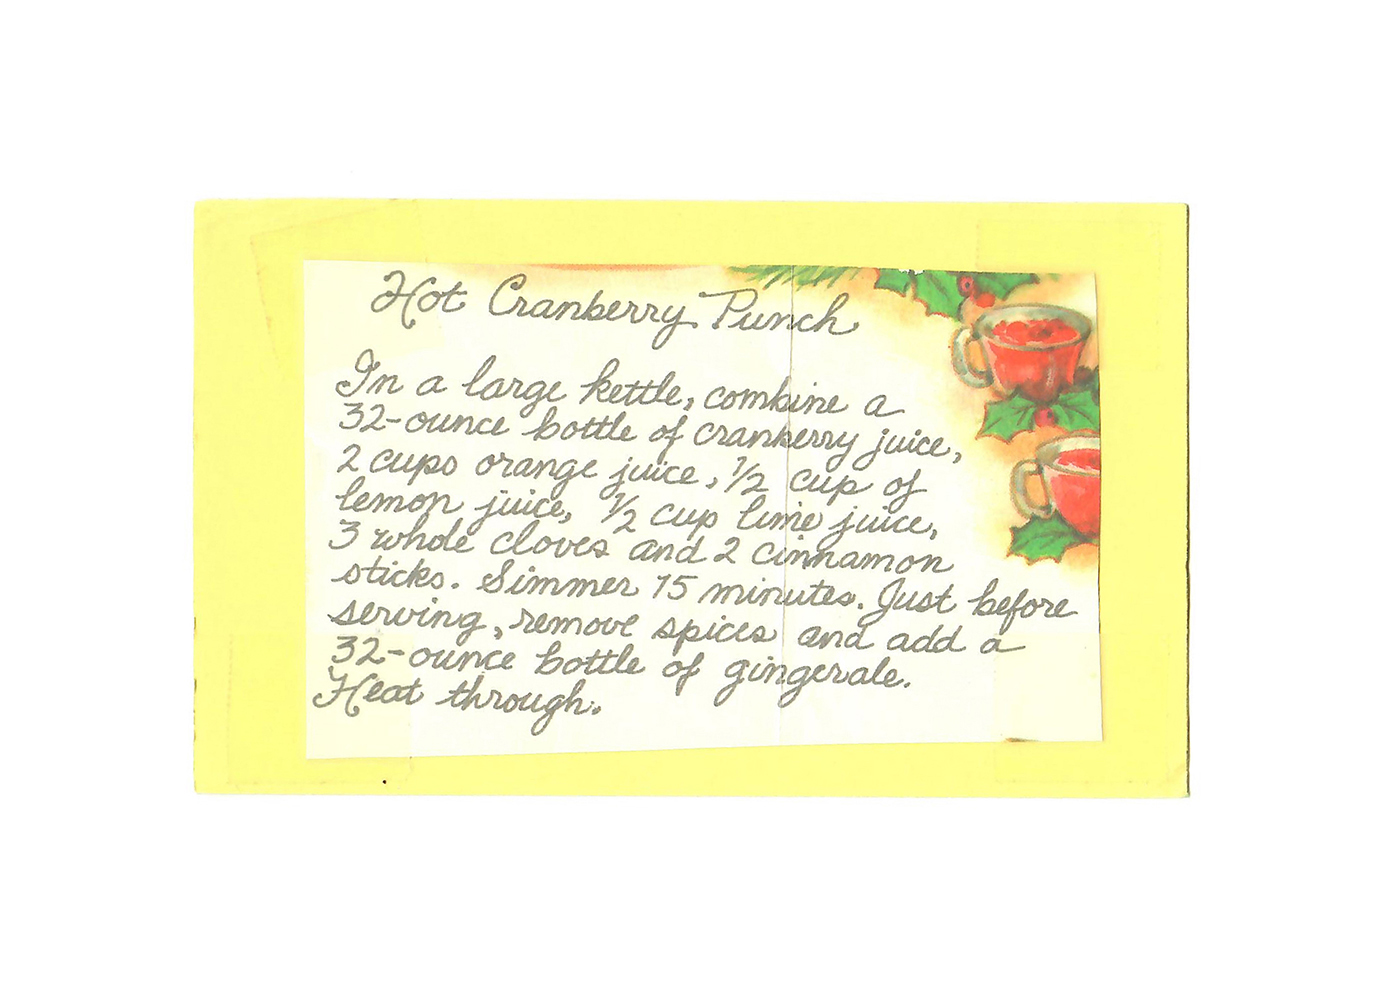 Hot Cranberry Punch
In a large kettle, combine a
32-ounce bottle of cranberry juice,
2 cups orange juice, 1/2 cup of
lemon juice, 1/2 cup lime juice,
3 whole cloves and 2 cinnamon
sticks. Simmer 15 minutes. Just before
serving, remove spices and add a
32-ounce bottle of gingerale.
Heat through.